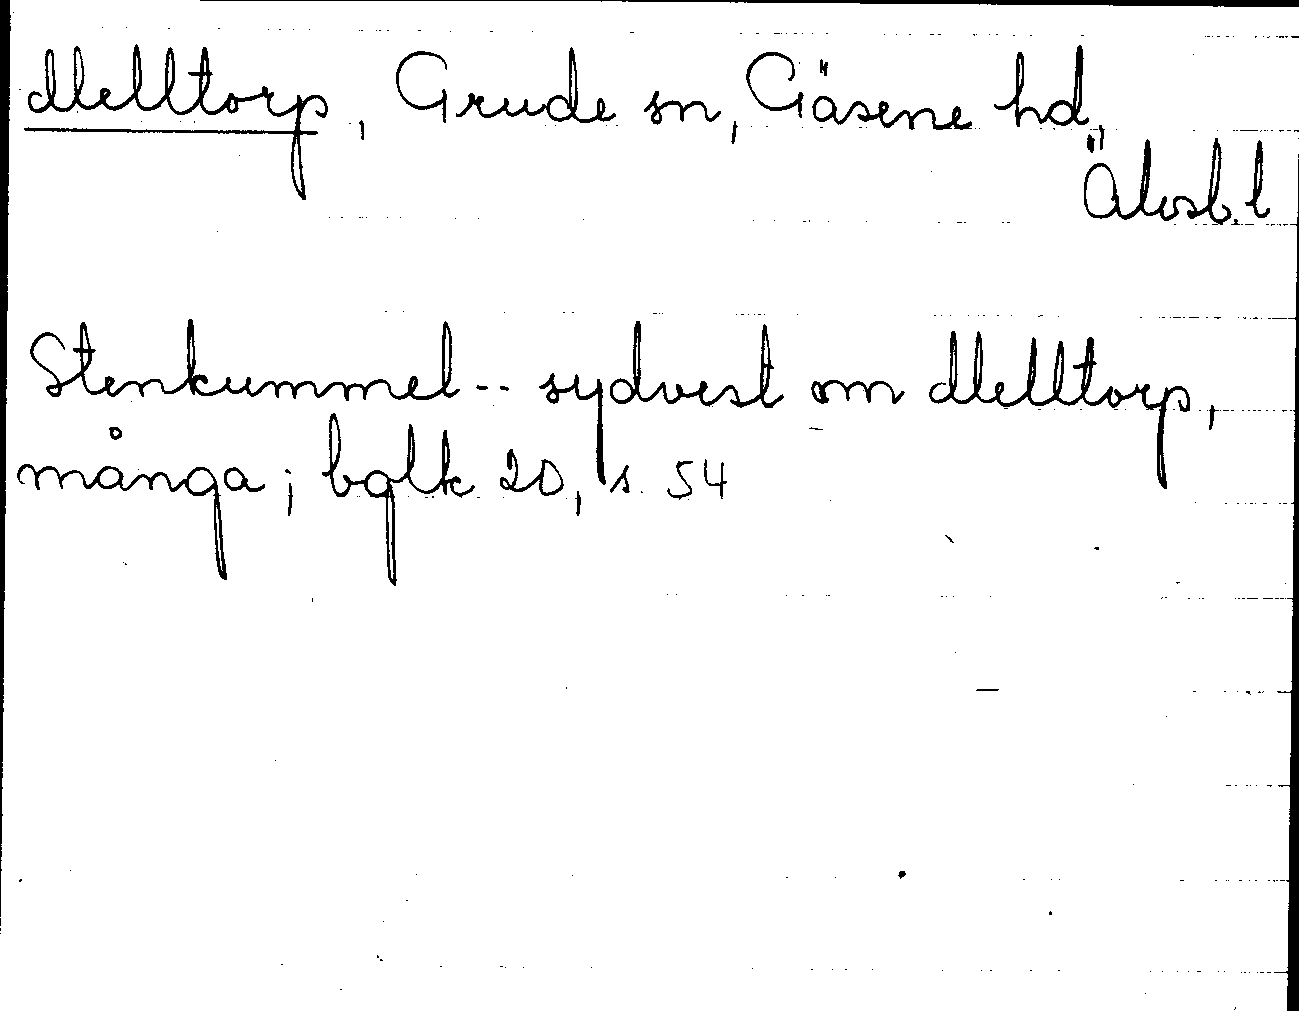 Melltorp, Grude sn, Gäsene hd,
Älvsb. l
Stenkummel -- sydvest om Melltorp,
många; bglk 20, s 54